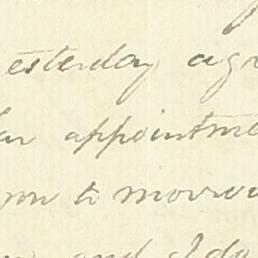 esterday agr
appointme
to morrow
and I do